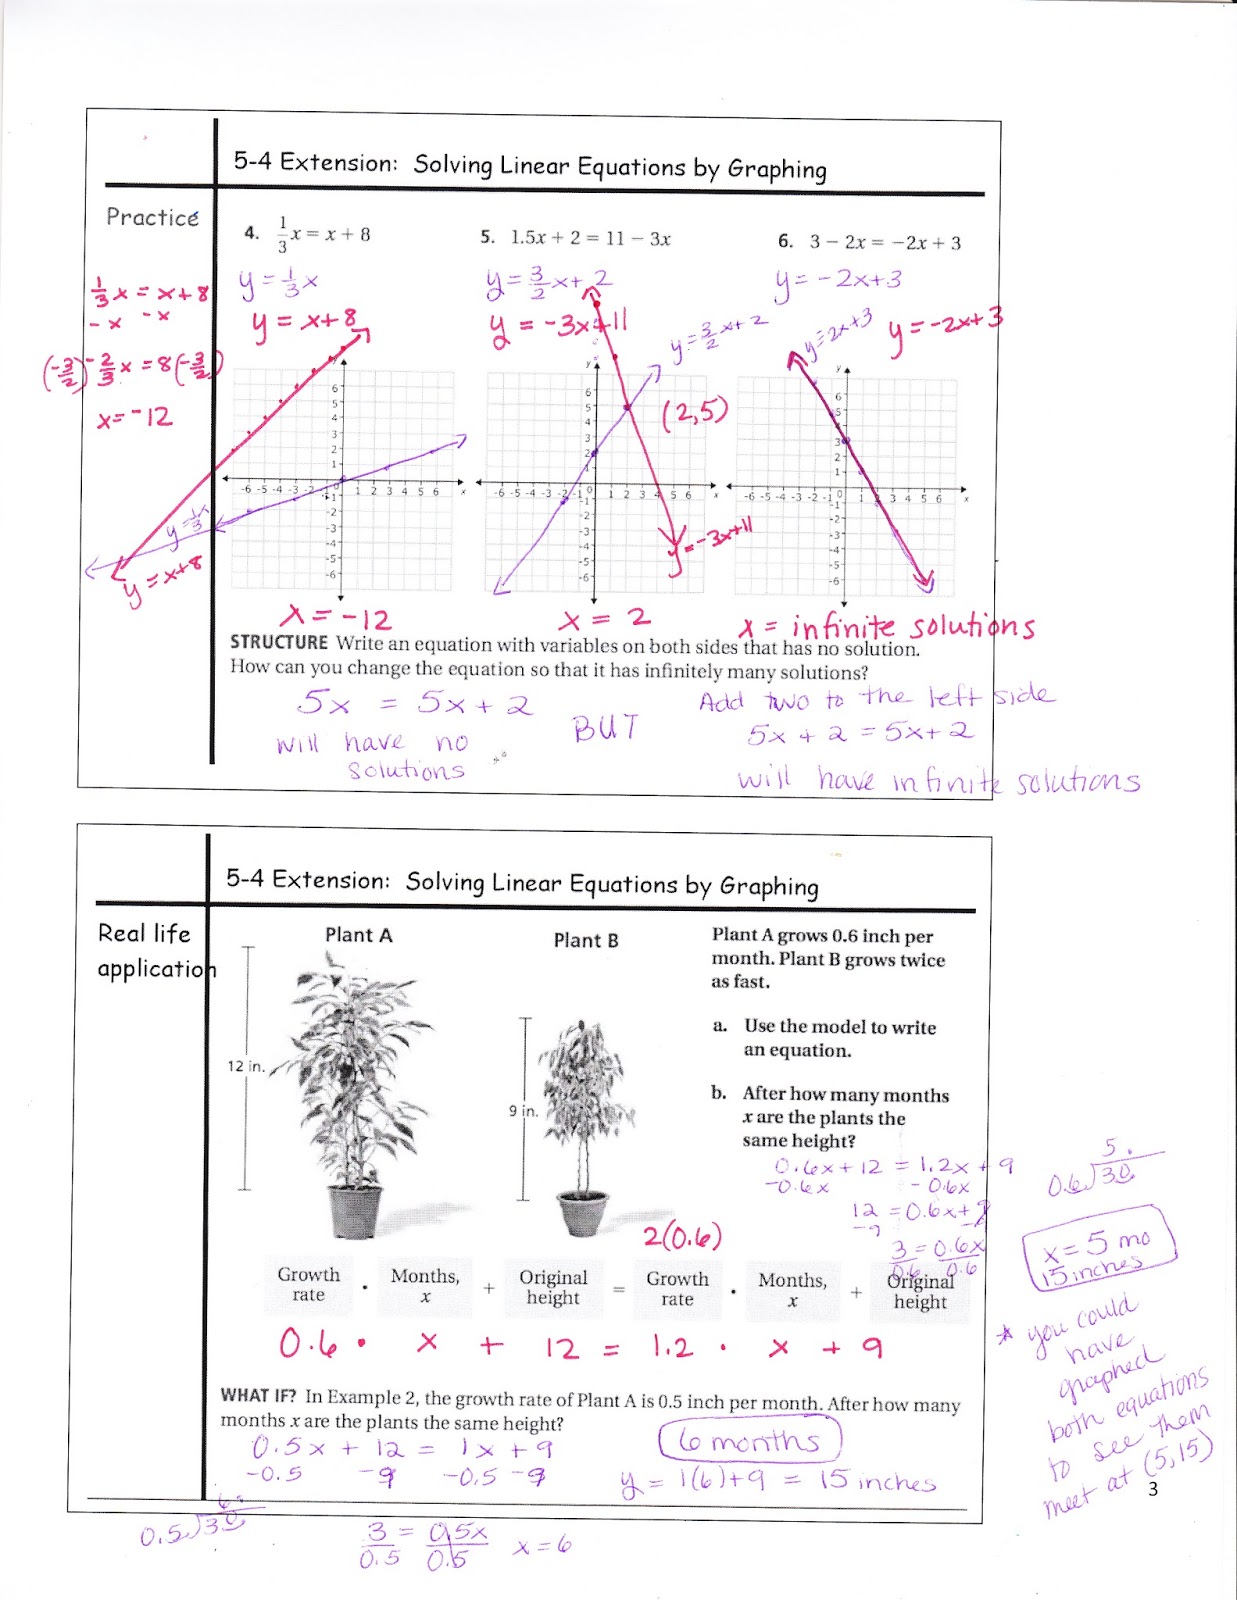 5-4 Extension: Solving Linear Equations by Graphing
Practice
4. 1/3 x = x + 8
5. 1.5x + 2 = 11 − 3x
6. 3 − 2x = −2x + 3
1/3 x = x + 8
-x -x
(-3/2) -2/3 x = 8 (-3/2)
x = -12
y = 1/3 x
y = x+8
y = 3/2 x + 2
y = -3x+11
y = -2x+3
y = -2x+3
y = 1/3 x
y = x+8
y = 3/2 x + 2
(2,5)
y = -3x+11
y = 2x+3
x = -12
x = 2
x = infinite solutions
STRUCTURE Write an equation with variables on both sides that has no solution.
How can you change the equation so that it has infinitely many solutions?
5x = 5x + 2
will have no
solutions
BUT
Add two to the left side
5x + 2 = 5x + 2
will have infinite solutions
5-4 Extension: Solving Linear Equations by Graphing
Real life
application
Plant A
Plant B
12 in.
9 in.
Plant A grows 0.6 inch per
month. Plant B grows twice
as fast.
a. Use the model to write
an equation.
b. After how many months
x are the plants the
same height?
0.6x + 12 = 1.2x + 9
-0.6x - 0.6x
12 = 0.6x + 9
-9 -9
3 = 0.6x
0.6 0.6
5.
0.6)3.0
x = 5 mo
15 inches
* you could
have
graphed
both equations
to see them
meet at (5,15)
2(0.6)
Growth rate · Months, x + Original height = Growth rate · Months, x + Original height
0.6 · x + 12 = 1.2 · x + 9
WHAT IF? In Example 2, the growth rate of Plant A is 0.5 inch per month. After how many
months x are the plants the same height?
0.5x + 12 = 1x + 9
-0.5 -9 -0.5 -9
6 months
y = 1(6)+9 = 15 inches
6.
0.5)3.0
3 = 0.5x
0.5 0.5
x = 6
3